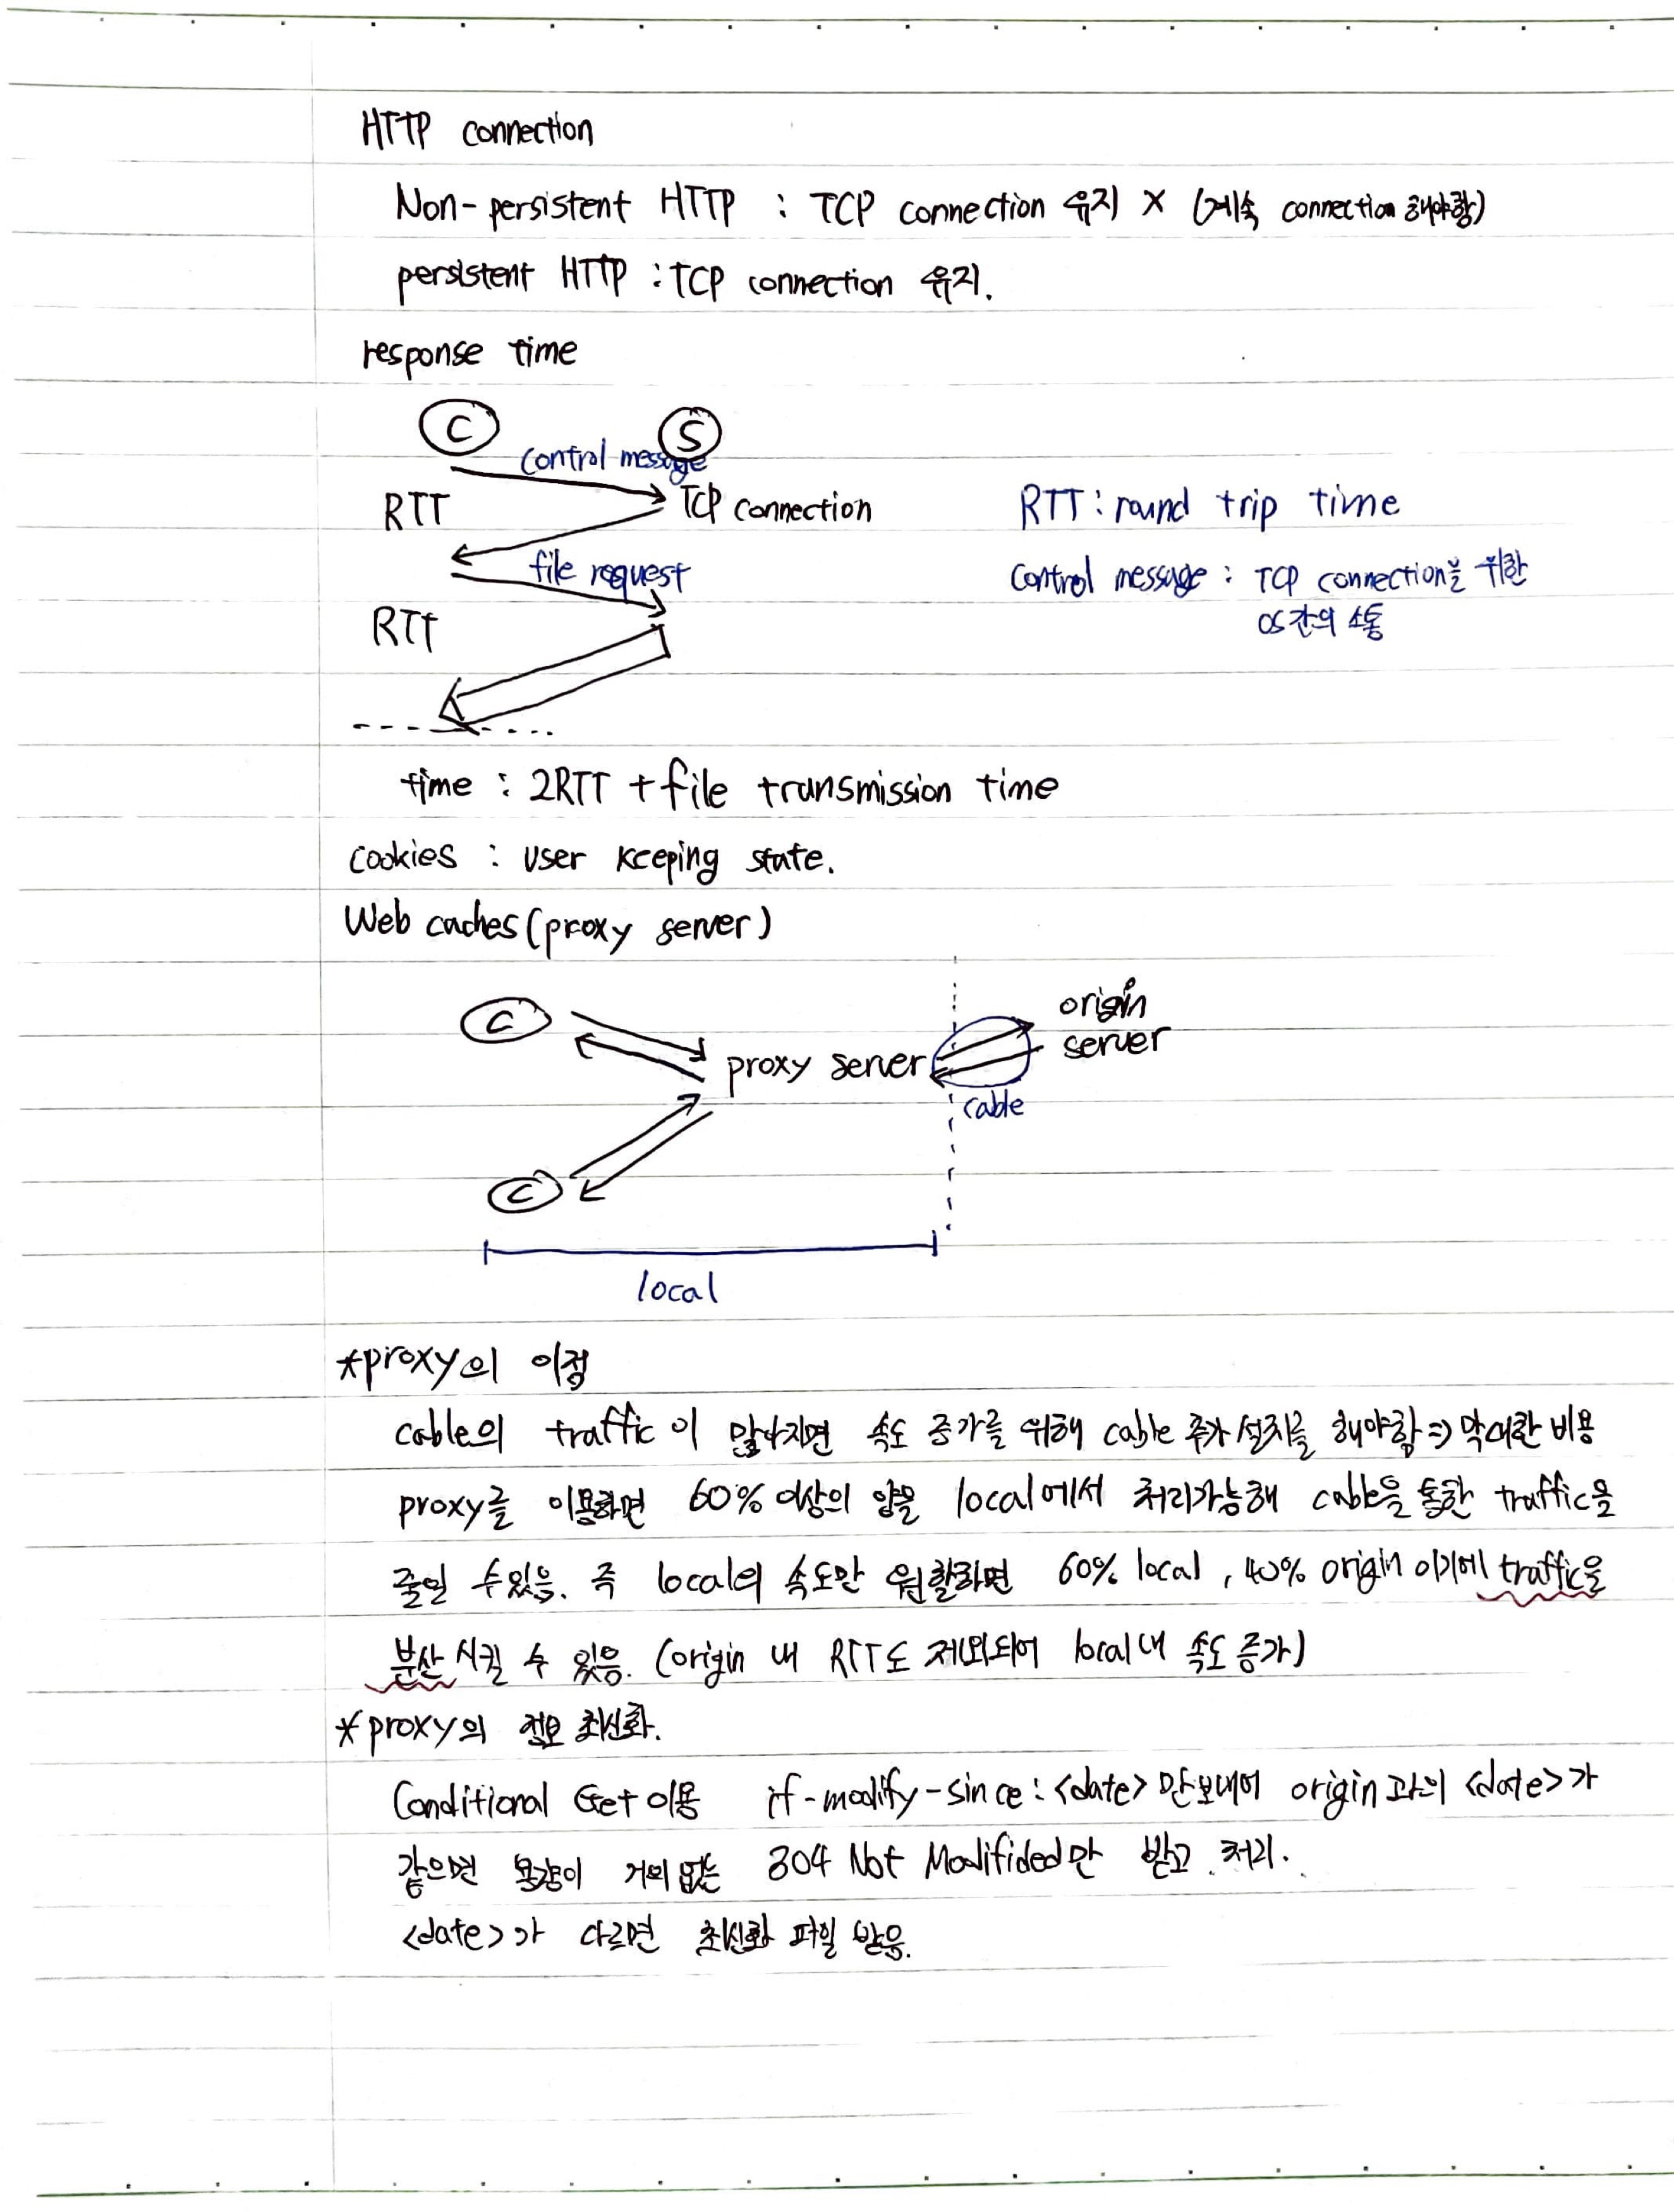 HTTP connection
Non-persistent HTTP : TCP connection 유지 X (계속 connection 해야함)
persistent HTTP : TCP connection 유지.
response time
C S
control message
RTT TCP connection RTT : round trip time
file request control message : TCP connection을 위한
RTT OS간의 소통
time : 2RTT + file transmission time
cookies : user keeping state.
Web caches (proxy server)
C origin
proxy server server
cable
C
local
*proxy의 이점
cable의 traffic이 많아지면 속도 증가를 위해 cable 추가 설치를 해야함 => 막대한 비용
proxy를 이용하면 60% 이상의 양을 local에서 처리가능해 cable을 통한 traffic을
줄일 수 있음. 즉 local의 속도만 원활하면 60% local, 40% origin 이기에 traffic을
분산 시킬 수 있음. (origin 내 RTT도 제외되어 local 내 속도 증가)
*proxy의 정보 최신화.
Conditional Get 이용 if-modify-since : <date> 만 보내어 origin 과의 <date>가
같으면 용량이 거의 없는 304 Not Modifided만 받고 처리.
<date>가 다르면 최신화 파일 받음.